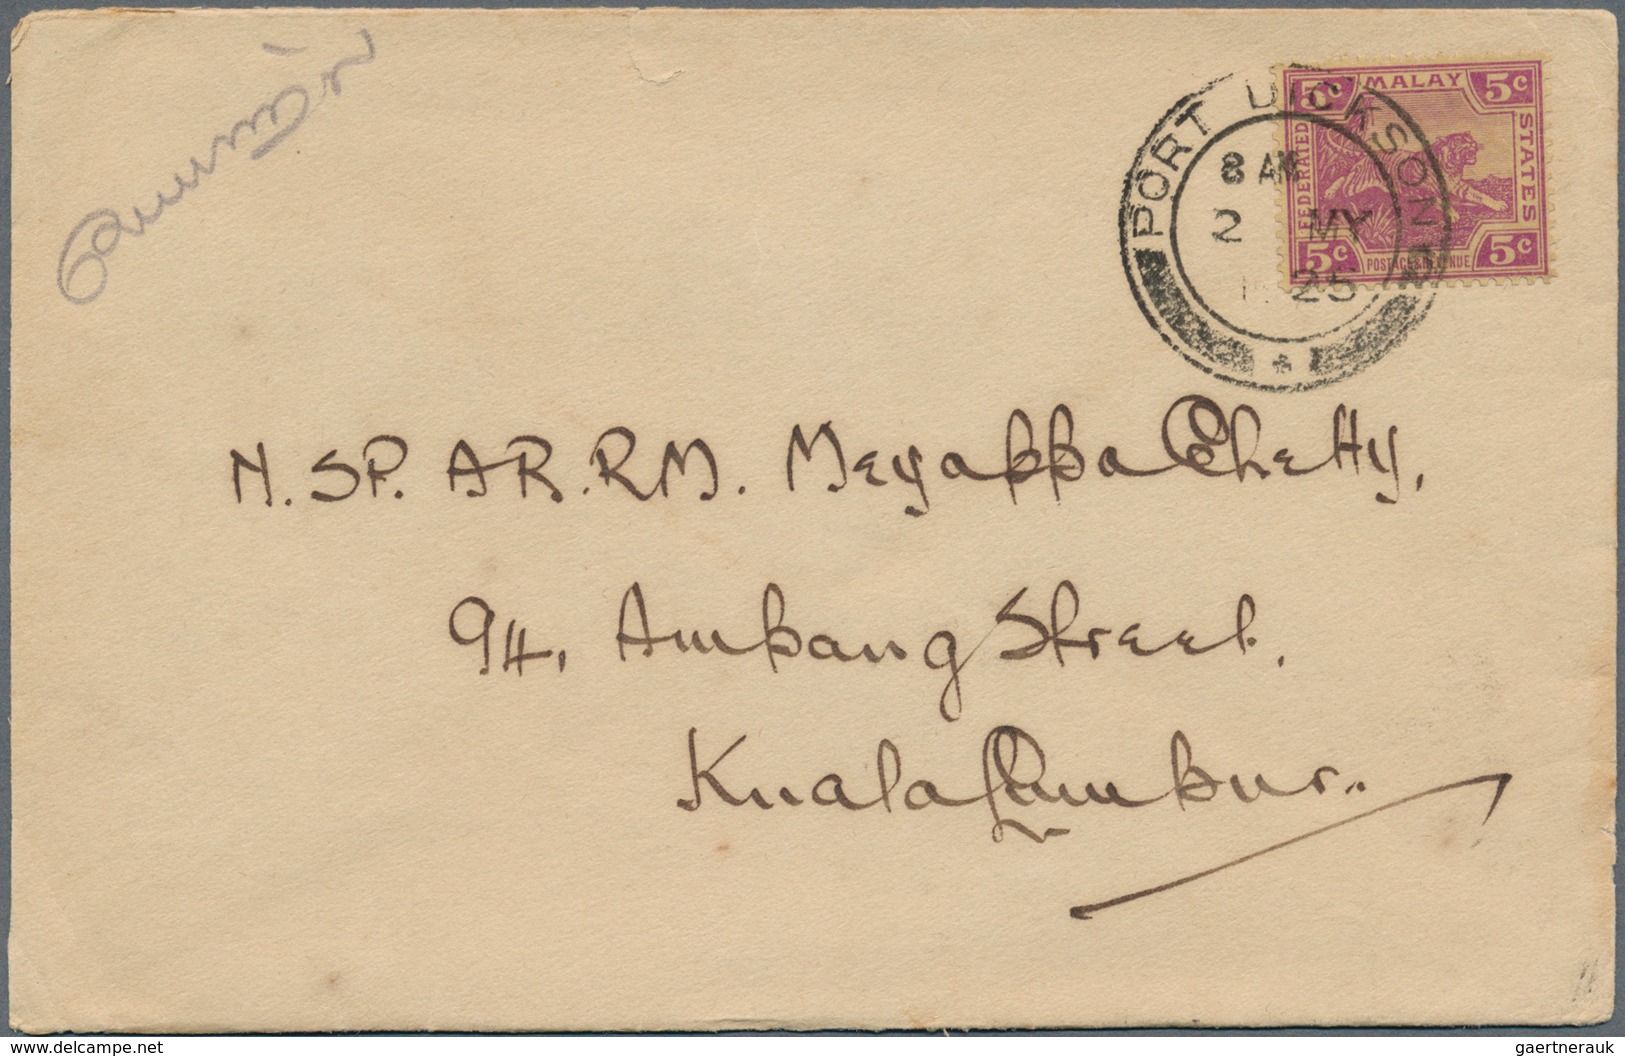 PORT DICKSON
8 AM
2 MY
25
MALAY
5c 5c
FEDERATED
STATES
5c 5c
POSTAGE & REVENUE
N. SP. AR. RM. Meyappa Chetty,
94, Ambang Street.
Kuala Lumpur..
www.delcampe.net
gaertnerauk